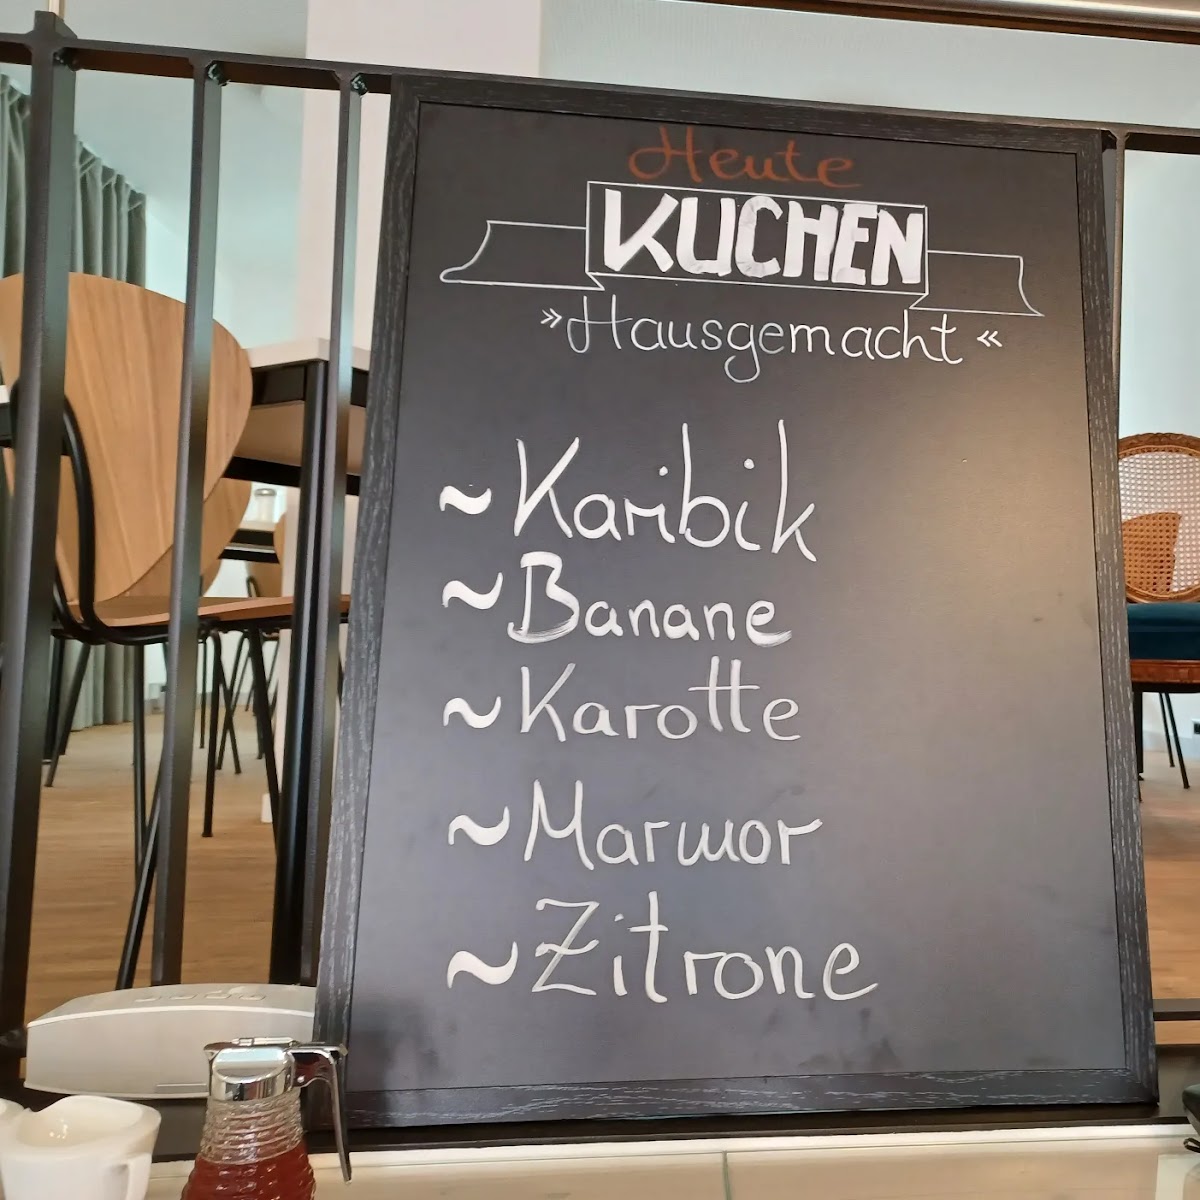 Heute
KUCHEN
»Hausgemacht«
~Karibik
~Banane
~Karotte
~Marmor
~Zitrone